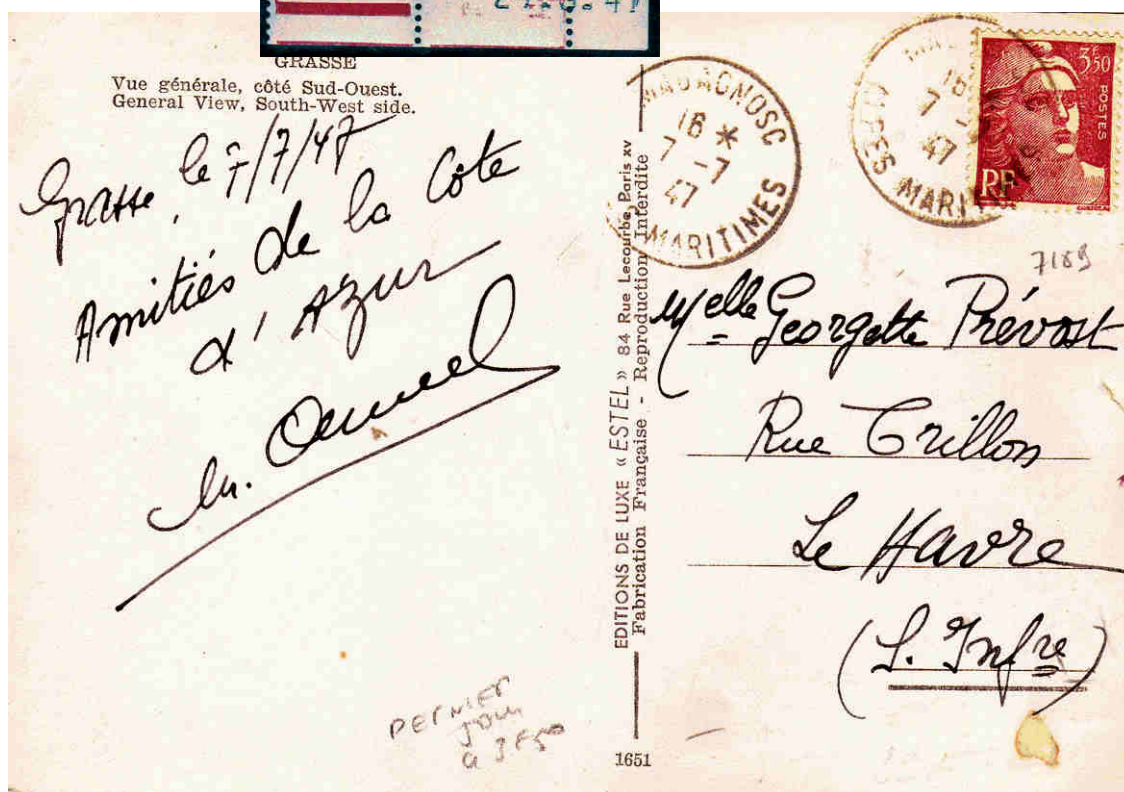 GRASSE
Vue générale, côté Sud-Ouest.
General View, South-West side.
Grasse, le 7/7/47
Amitiés de la Côte
d'Azur
DERNIER
JOUR
a 3F50
EDITIONS DE LUXE « ESTEL » 84 Rue Lecourbe, Paris XV
Fabrication Française - Reproduction Interdite
1651
MAGAGNOSC
16 *
7 -7
47
MARITIMES
16
7
47
ALPES MARITIMES
3F50
POSTES
RF
7189
Melle Georgette Prévost
Rue Crillon
Le Havre
(S. Infre)